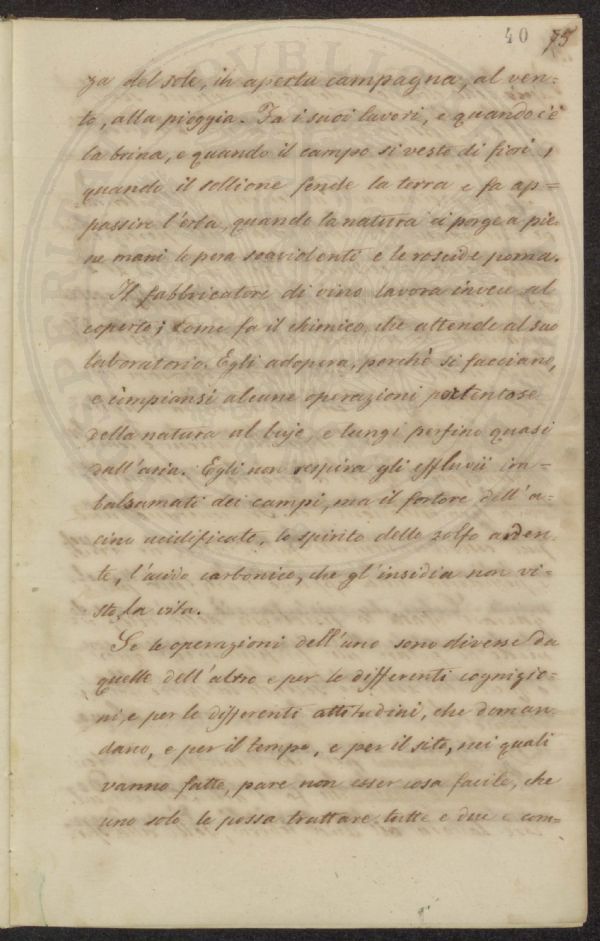 40 75
za del sole, in aperta campagna, al ven=
to, alla pioggia. Fa i suoi lavori, e quando c'è
la brina, e quando il campo si veste di fiori,
quando il sollione fende la terra e fa ap=
passire l'erba, quando la natura ci porge a pie=
ne mani le pera soavidenti e le roscide poma.
Il fabbricatore di vino lavora invece al
coperto; come fa il chimico, che attende al suo
laboratorio. Egli adopera, perchè si facciano,
e compiansi alcune operazioni portentose
della natura al buje, e lungi perfino quasi
dall'aria. Egli non respira gli effluvii im=
balsamati dei campi, ma il fortore dell'a=
cino acidificato, lo spirito dello zolfo arden=
te, l'acido carbonico, che gl'insidia non vi=
sto, la vita.
Se le operazioni dell'uno sono diverse da
quelle dell'altro e per le differenti cognizio=
ni, e per le differenti attitudini, che doman=
dano, e per il tempo, e per il sito, nei quali
vanno fatte, pare non esser cosa facile, che
uno solo le possa trattare tutte e due e com=